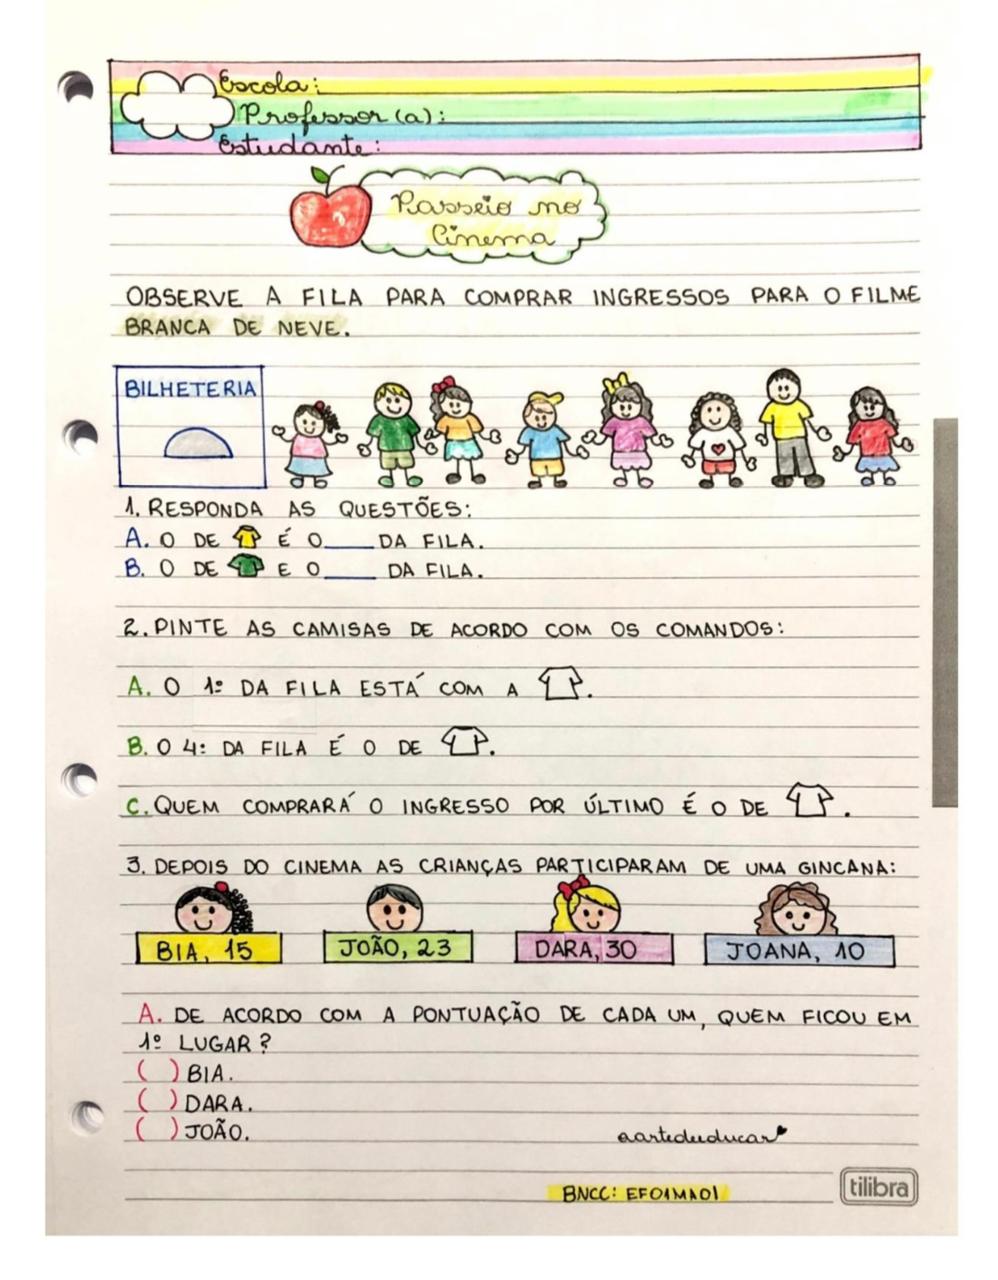 Escola:
Professor(a):
Estudante:
Passeio no
Cinema
OBSERVE A FILA PARA COMPRAR INGRESSOS PARA O FILME
BRANCA DE NEVE.
BILHETERIA
1. RESPONDA AS QUESTÕES:
A. O DE É O____ DA FILA.
B. O DE E O____ DA FILA.
2. PINTE AS CAMISAS DE ACORDO COM OS COMANDOS:
A. O 1º DA FILA ESTÁ COM A .
B. O 4º DA FILA É O DE .
C. QUEM COMPRARÁ O INGRESSO POR ÚLTIMO É O DE .
3. DEPOIS DO CINEMA AS CRIANÇAS PARTICIPARAM DE UMA GINCANA:
BIA, 15
JOÃO, 23
DARA, 30
JOANA, 10
A. DE ACORDO COM A PONTUAÇÃO DE CADA UM, QUEM FICOU EM
1º LUGAR?
( ) BIA.
( ) DARA.
( ) JOÃO.
aartedueducar
BNCC: EF01MA01
tilibra